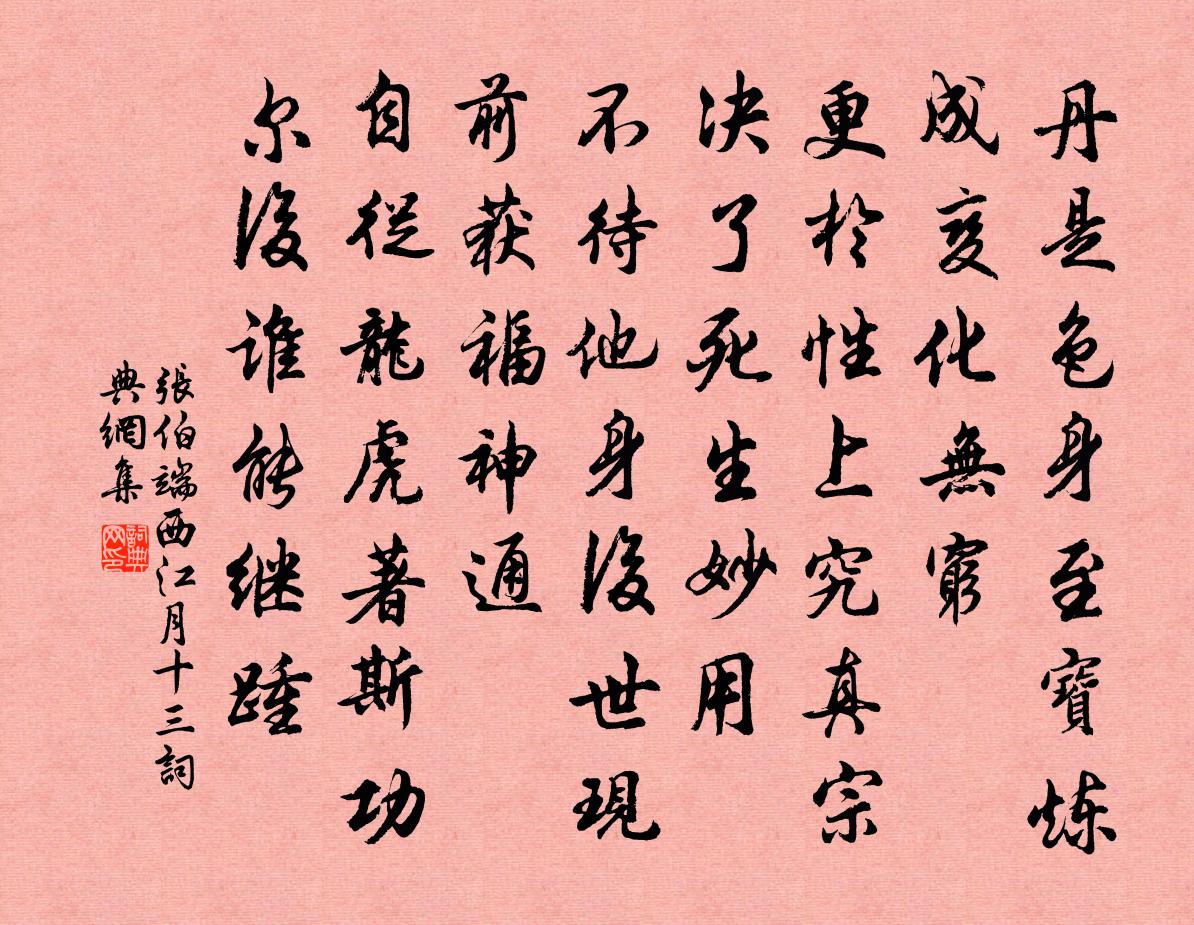 丹是色身至寶炼
成变化無窮
更於性上究真宗
决了死生妙用
不待他身後世現
前获福神通
自從龍虎著斯功
尔後谁能继踵
張伯端西江月十三詞
典網集
詞典网印